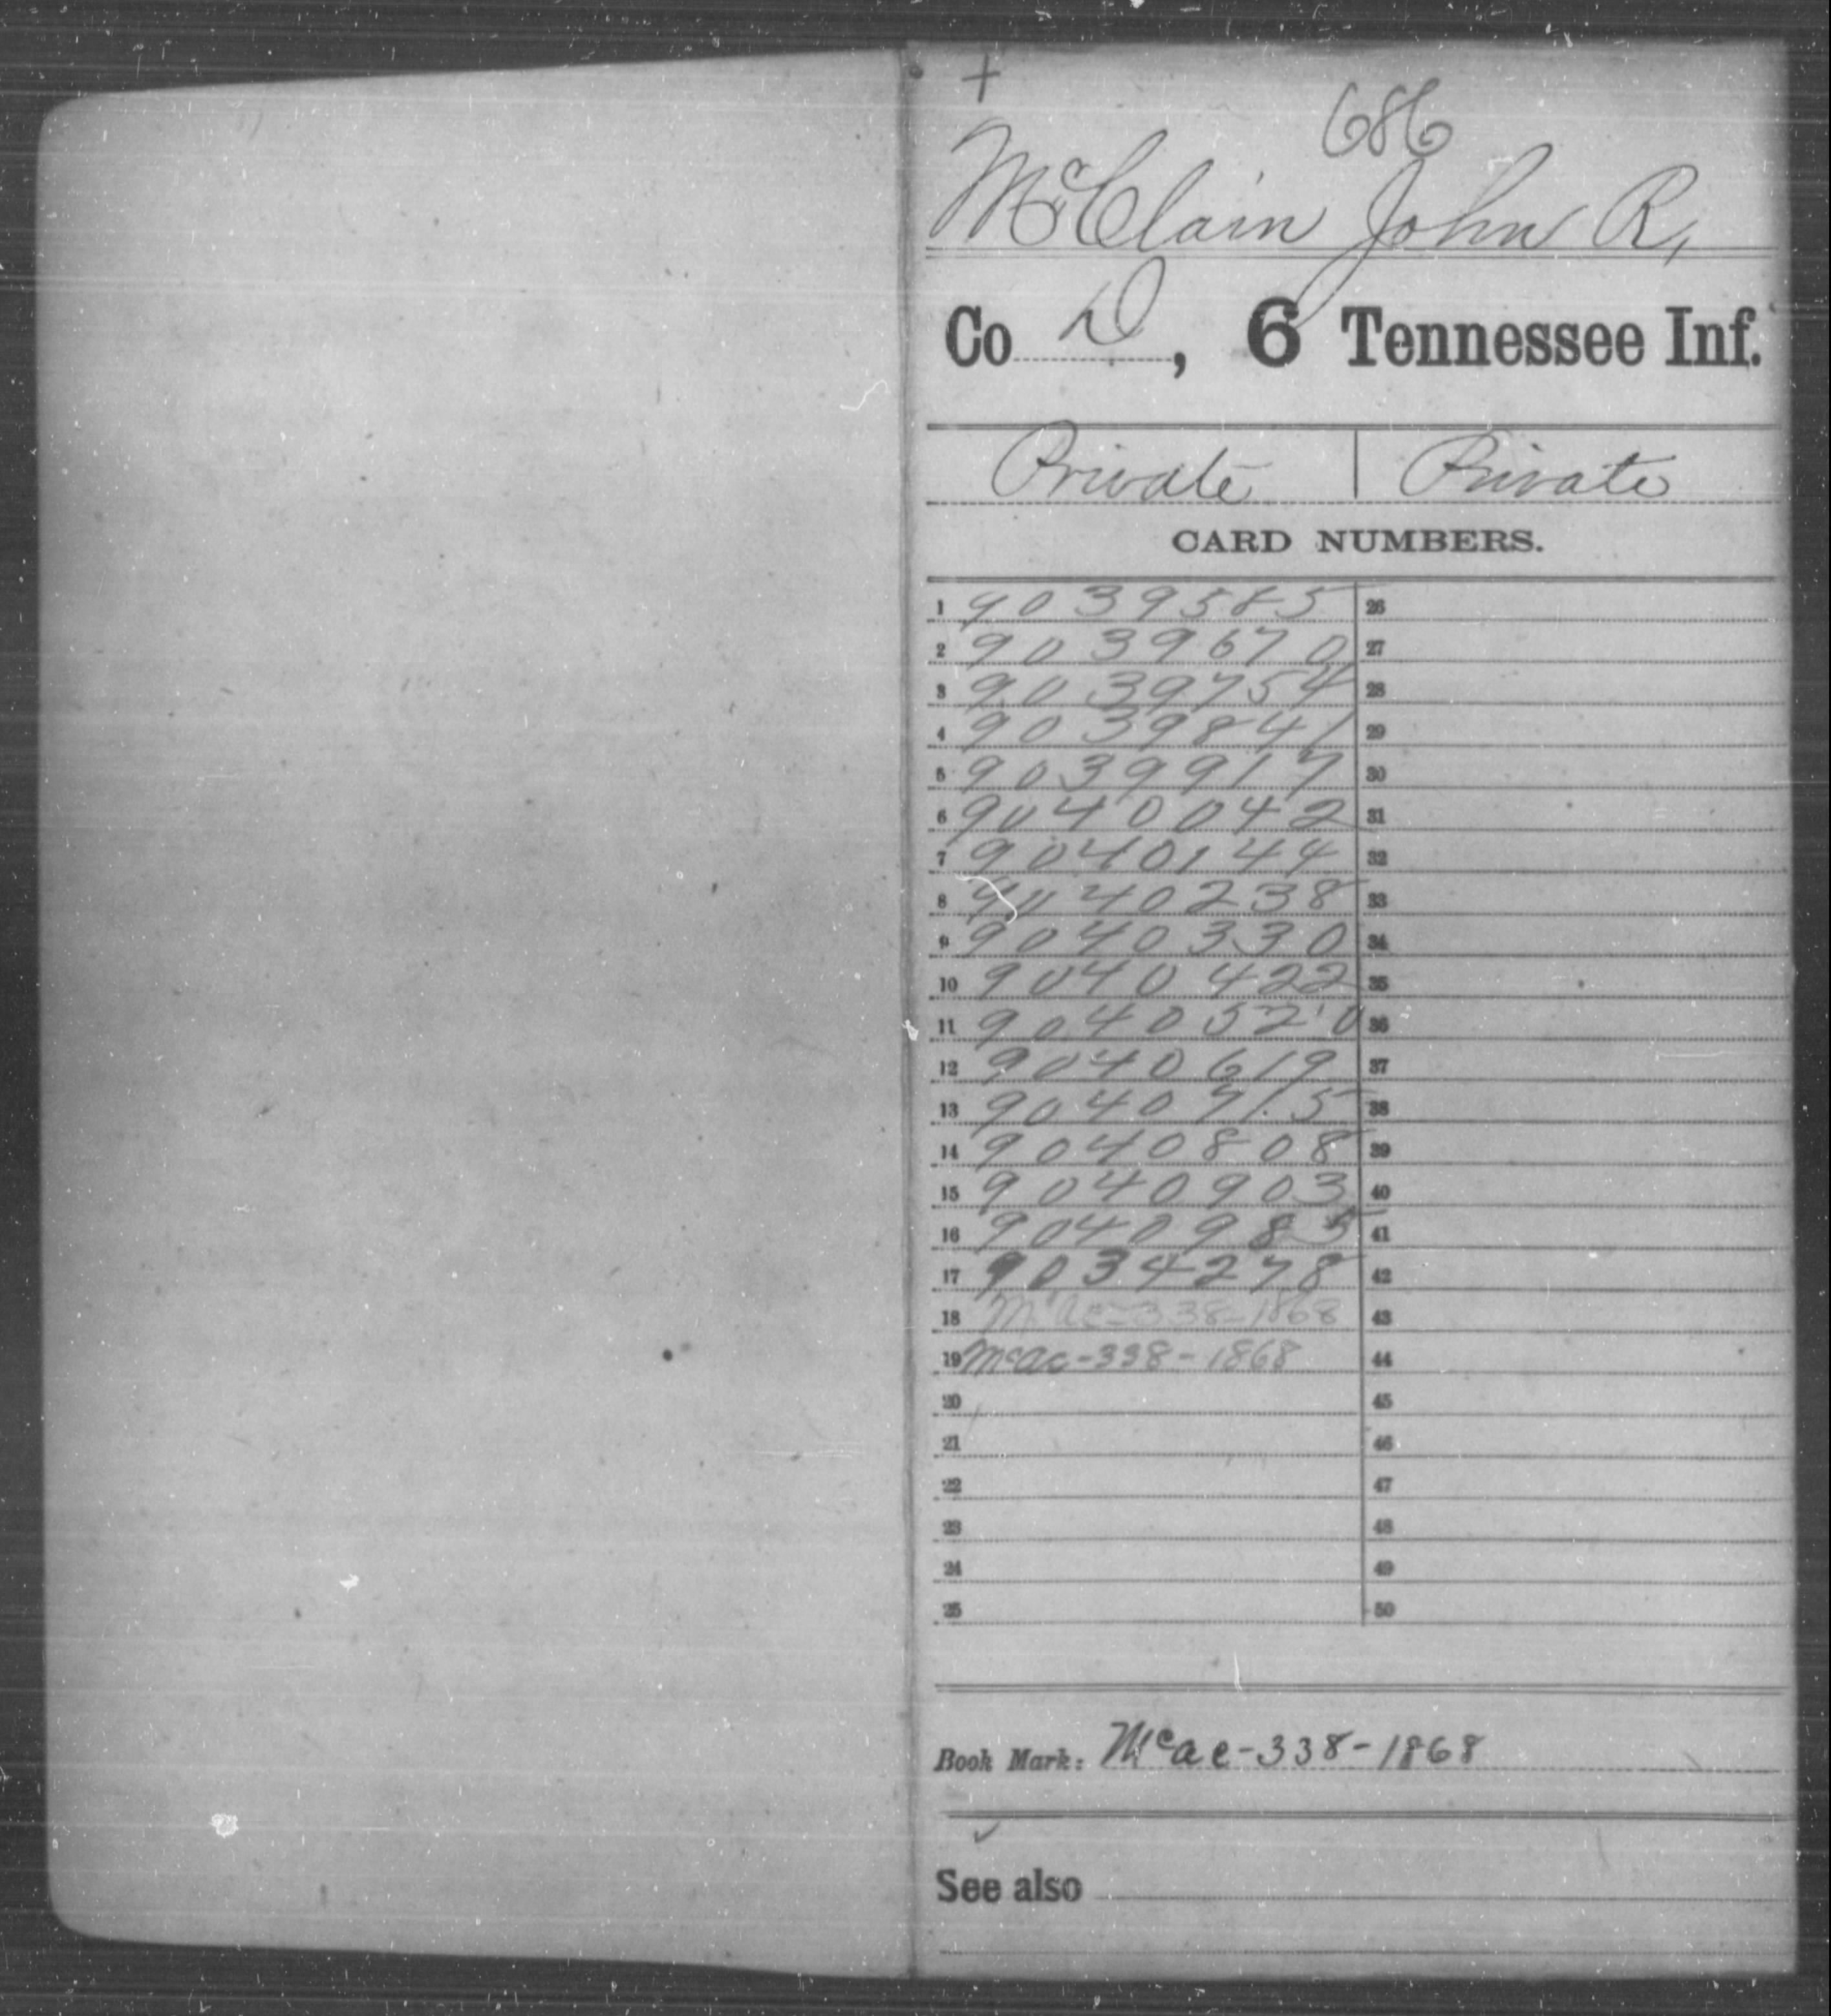 +
686
McClain John R.
Co D, 6 Tennessee Inf.
Private | Private
CARD NUMBERS.
1 9039585 26
2 9039670 27
3 9039754 28
4 9039841 29
5 9039917 30
6 9040042 31
7 9040144 32
8 9040238 33
9 9040330 34
10 9040422 35
11 9040520 36
12 9040619 37
13 9040715 38
14 9040808 39
15 9040903 40
16 9040985 41
17 9034278 42
18 338-1868 43
19 McAc-338-1868 44
20 45
21 46
22 47
23 48
24 49
25 50
Book Mark: McAc-338-1868
See also